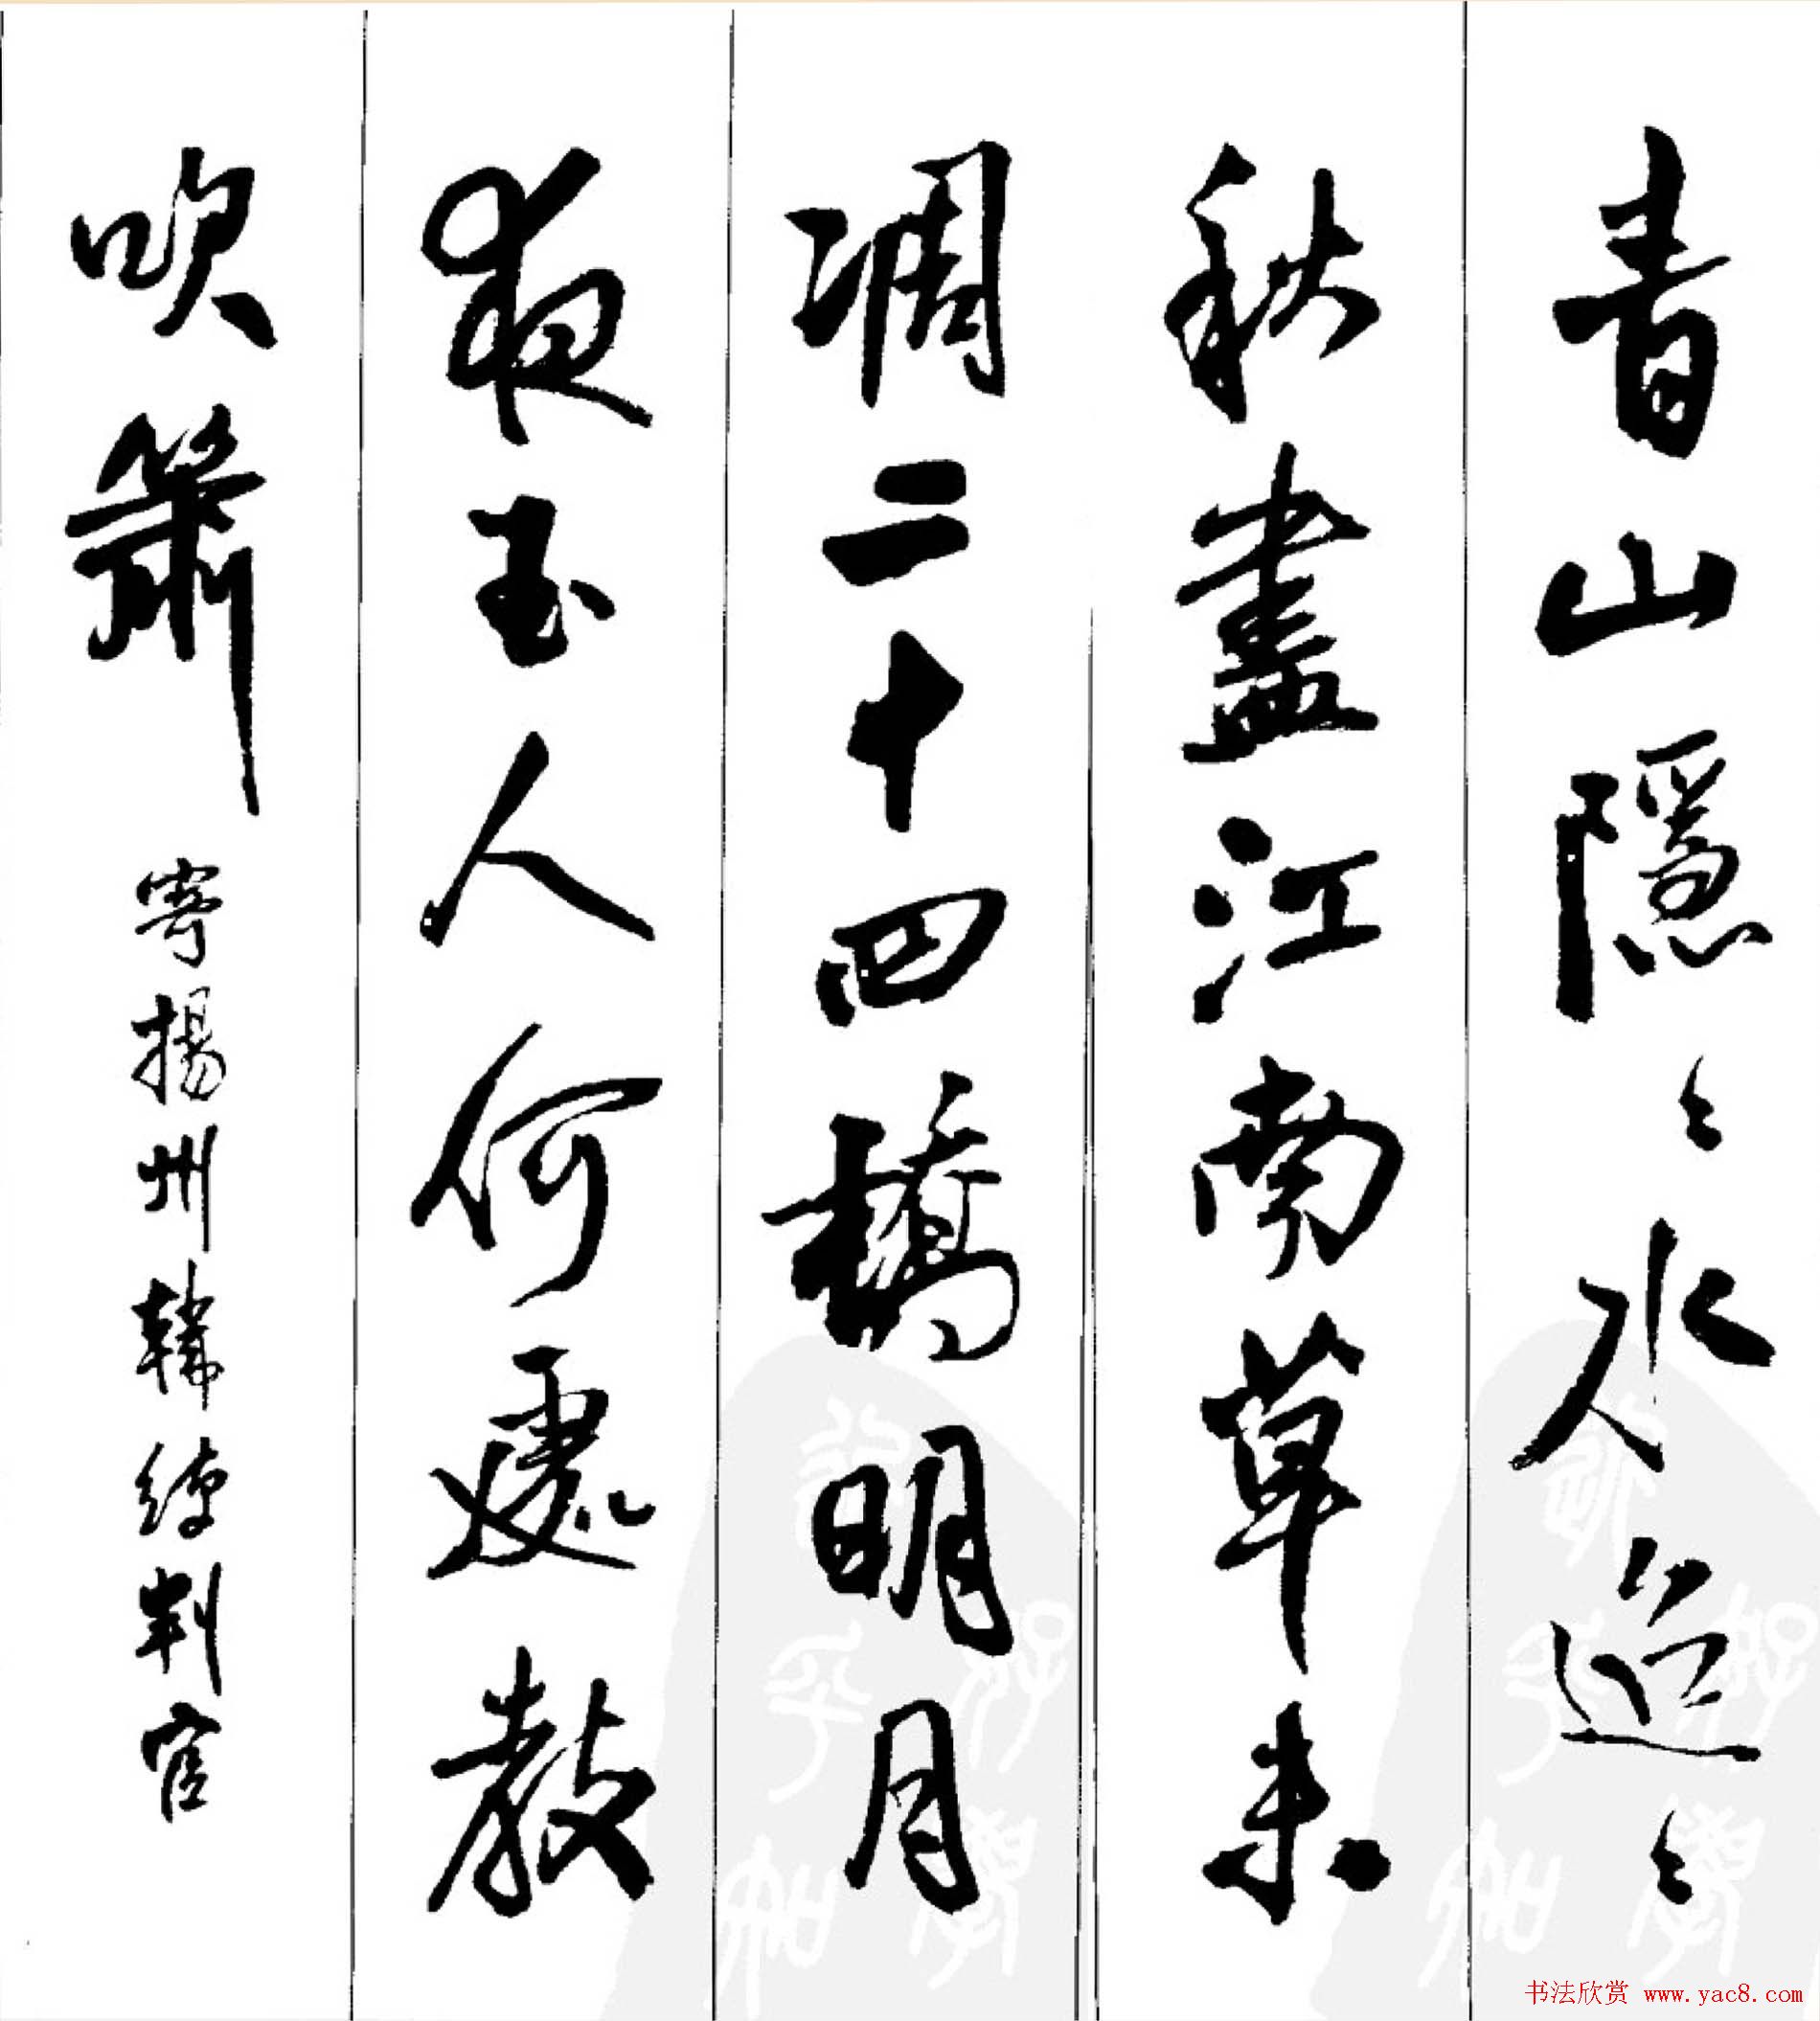 青山隱々水迢々
秋盡江南草未
凋二十四橋明月
夜玉人何處教
吹簫
寄揚州韓綽判官
书法欣赏 www.yac8.com